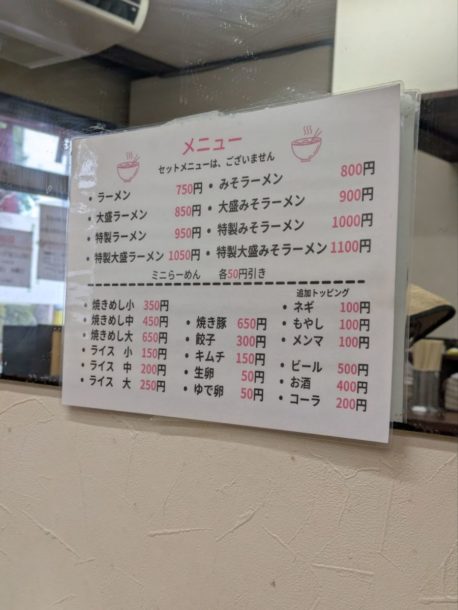 メニュー
セットメニューは、ございません
・ラーメン 750円
・大盛ラーメン 850円
・特製ラーメン 950円
・特製大盛ラーメン 1050円
・みそラーメン 800円
・大盛みそラーメン 900円
・特製みそラーメン 1000円
・特製大盛みそラーメン 1100円
ミニらーめん 各50円引き
・焼きめし小 350円
・焼きめし中 450円
・焼きめし大 650円
・ライス 小 150円
・ライス 中 200円
・ライス 大 250円
・焼き豚 650円
・餃子 300円
・キムチ 150円
・生卵 50円
・ゆで卵 50円
追加トッピング
・ネギ 100円
・もやし 100円
・メンマ 100円
・ビール 500円
・お酒 400円
・コーラ 200円